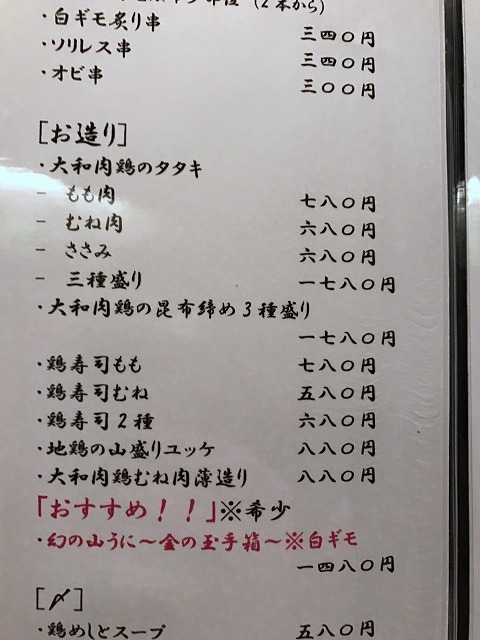 (2本から)
・白ギモ炙り串 三四〇円
・ソリレス串 三四〇円
・オビ串 三〇〇円
[お造り]
・大和肉鶏のタタキ
- もも肉 七八〇円
- むね肉 六八〇円
- ささみ 六八〇円
- 三種盛り 一七八〇円
・大和肉鶏の昆布締め3種盛り
一七八〇円
・鶏寿司もも 七八〇円
・鶏寿司むね 五八〇円
・鶏寿司2種 六八〇円
・地鶏の山盛りユッケ 八八〇円
・大和肉鶏むね肉薄造り 八八〇円
「おすすめ！！」※希少
・幻の山うに～金の玉手箱～※白ギモ
一四八〇円
[〆]
・鶏めしとスープ 五八〇円